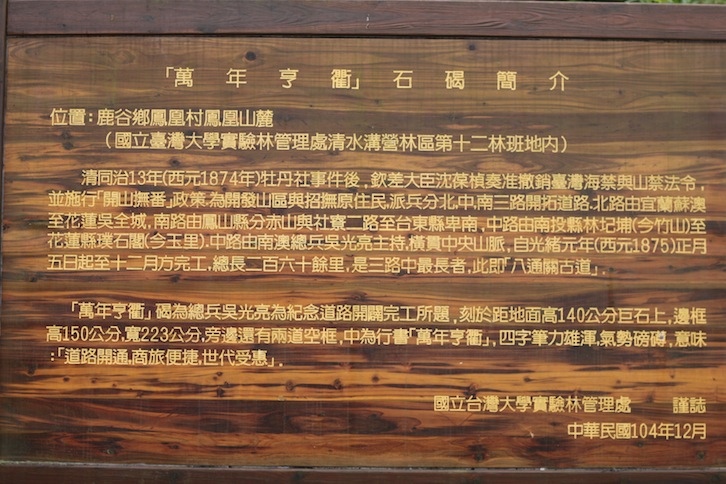 「萬年亨衢」石碣簡介
位置:鹿谷鄉鳳凰村鳳凰山麓
(國立臺灣大學實驗林管理處清水溝營林區第十二林班地內)
清同治13年(西元1874年)牡丹社事件後,欽差大臣沈葆楨奏准撤銷臺灣海禁與山禁法令,
並施行「開山撫番」政策.為開發山區與招撫原住民,派兵分北,中,南三路開拓道路.北路由宜蘭蘇澳
至花蓮吳全城,南路由鳳山縣分赤山與社寮二路至台東縣卑南,中路由南投縣林圮埔(今竹山)至
花蓮縣璞石閣(今玉里).中路由南澳總兵吳光亮主持,橫貫中央山脈,自光緒元年(西元1875)正月
五日起至十二月方完工,總長二百六十餘里,是三路中最長者,此即「八通關古道」.
「萬年亨衢」碣為總兵吳光亮為紀念道路開闢完工所題,刻於距地面高140公分巨石上,邊框
高150公分,寬223公分,旁邊還有兩道空框,中為行書「萬年亨衢」,四字筆力雄渾,氣勢磅礡,意味
:「道路開通,商旅便捷,世代受惠」.
國立台灣大學實驗林管理處 謹誌
中華民國104年12月